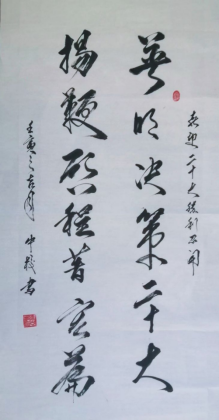 喜迎二十大胜利召开
英明决策二十大
揚鞭启程著宏篇
壬寅之吉月
書